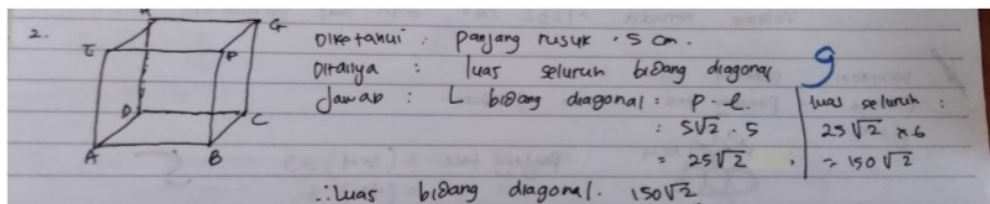 2.
H G
E F
D C
A B
Diketahui : panjang rusuk : 5 cm.
Ditanya : luas seluruh bidang diagonal
Jawab : L bidang diagonal : p . l.
: 5√2 . 5
= 25√2
9
luas seluruh :
25√2 x 6
= 150√2
∴ Luas bidang diagonal . 150√2